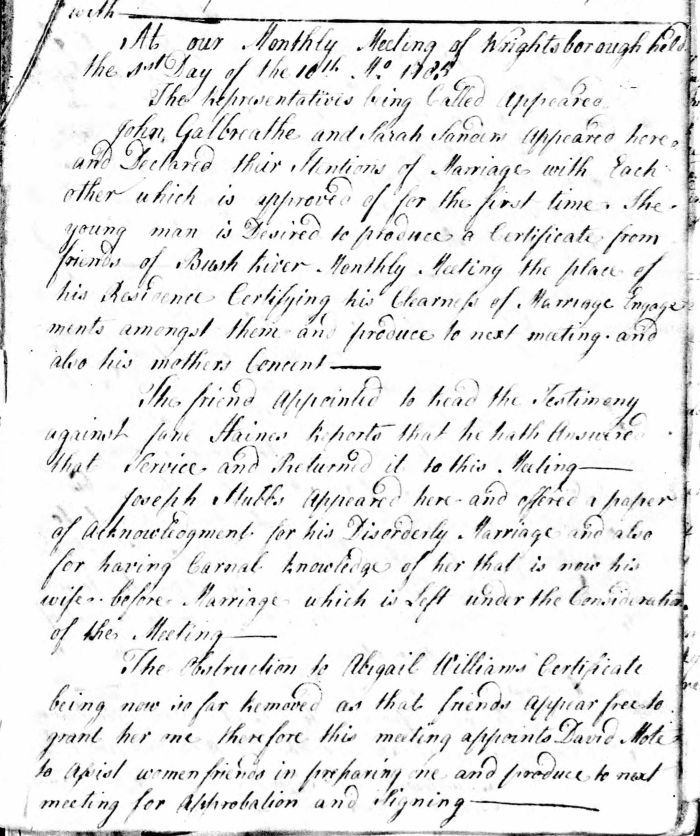 with
At our Monthly Meeting of Wrightsborough held
the 1st Day of the 10th Mo 1785
The Representatives being Called Appeared
John Galbreathe and Sarah Sanders Appeared here
and Declared their Intentions of Marriage with Each
other which is approved of for the first time. The
young man is Desired to produce a Certificate from
friends of Bush River Monthly Meeting the place of
his Residence Certifying his Clearness of Marriage Engage
ments amongst them and produce to next meeting and
also his mothers Concent
The friend Appointed to Read the Testimony
against Jane Haines Reports that he hath Answered
that Service and Returned it to this Meeting
Joseph Stubbs Appeared here and offered a paper
of Acknowledgment for his Disorderly Marriage and also
for having Carnal knowledge of her that is now his
wife before Marriage which is Left under the Consideration
of the Meeting
The Obstruction to Abigail Williams Certificate
being now so far Removed as that friends appear free to
grant her one therefore this meeting appoints David Mote
to Asist women friends in preparing one and produce to next
meeting for Approbation and Signing